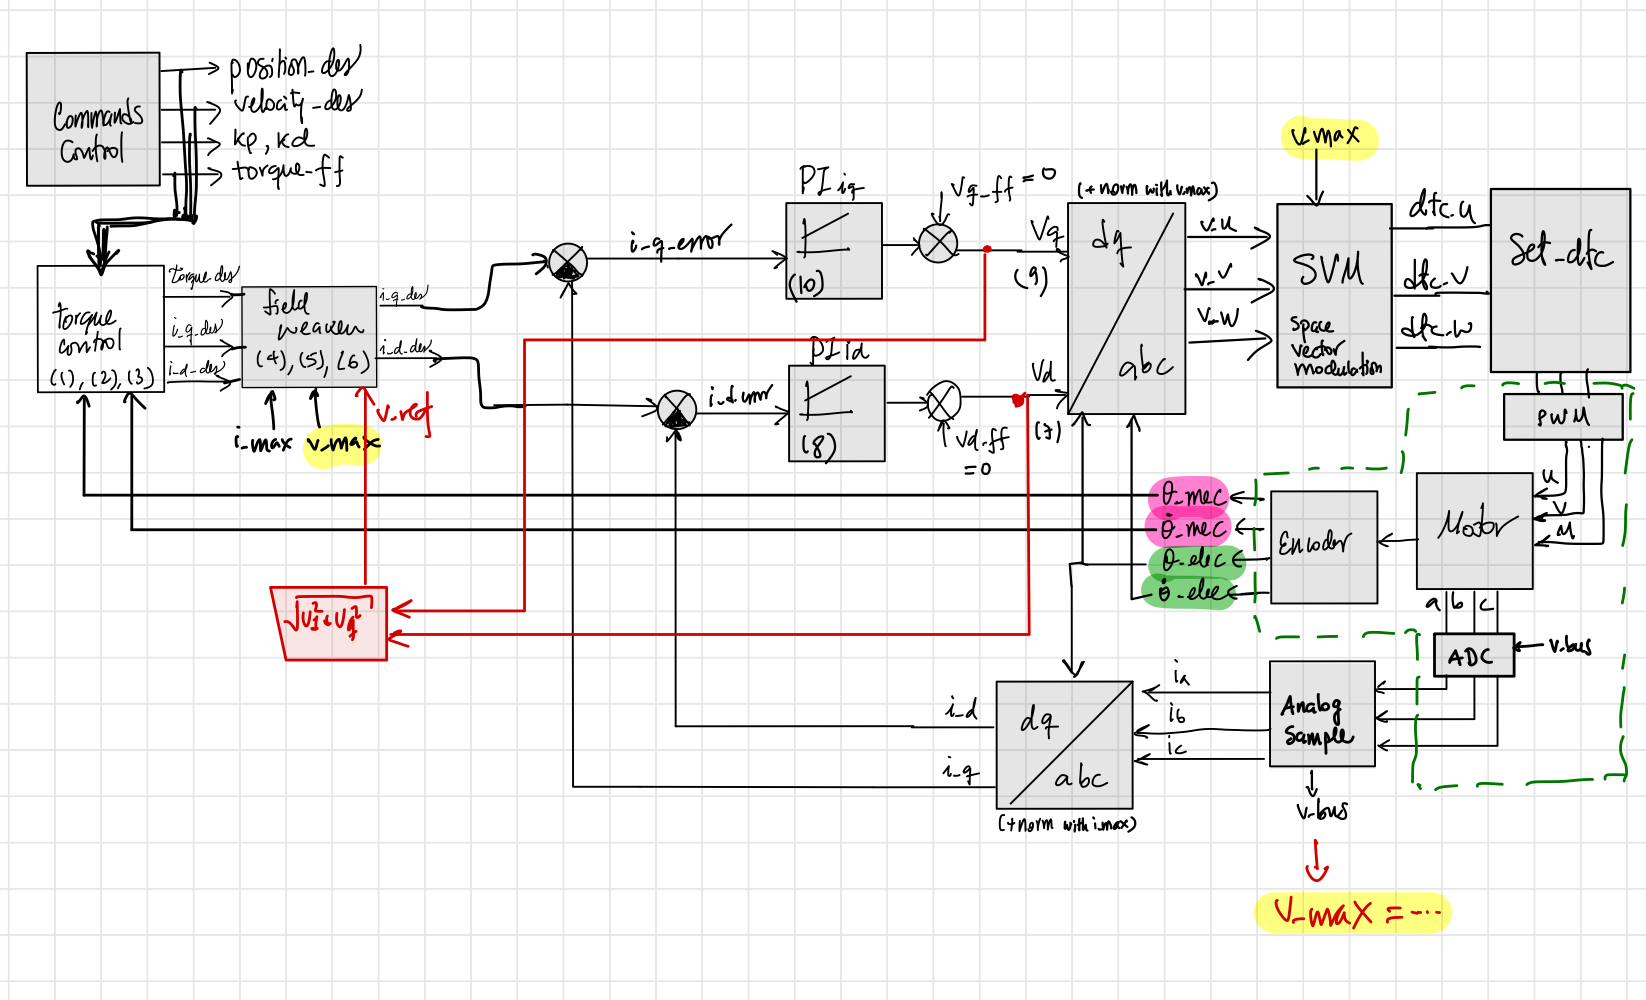 Commands
Control
position_des
velocity_des
kp, kd
torque_ff
torque
control
(1), (2), (3)
torque_des
i_q_des
i_d_des
field
weaken
(4), (5), (6)
i_q_des
i_d_des
i_max
v_max
v_ref
i_q_error
PI iq
(10)
Vq_ff = 0
Vq
(9)
i_d_error
PI id
(8)
Vd_ff
=0
Vd
(7)
(+ norm with v_max)
dq
abc
v_u
v_v
v_w
v_max
SVM
Space
vector
modulation
dtc_u
dtc_v
dtc_w
Set_dtc
PWM
u
v
Motor
a b c
ADC
v_bus
Encoder
θ_mec
θ̇_mec
θ_elec
θ̇_elec
Analog
Sample
ia
ib
ic
dq
abc
(+norm with i_max)
i_d
i_q
v_bus
V_max = ...